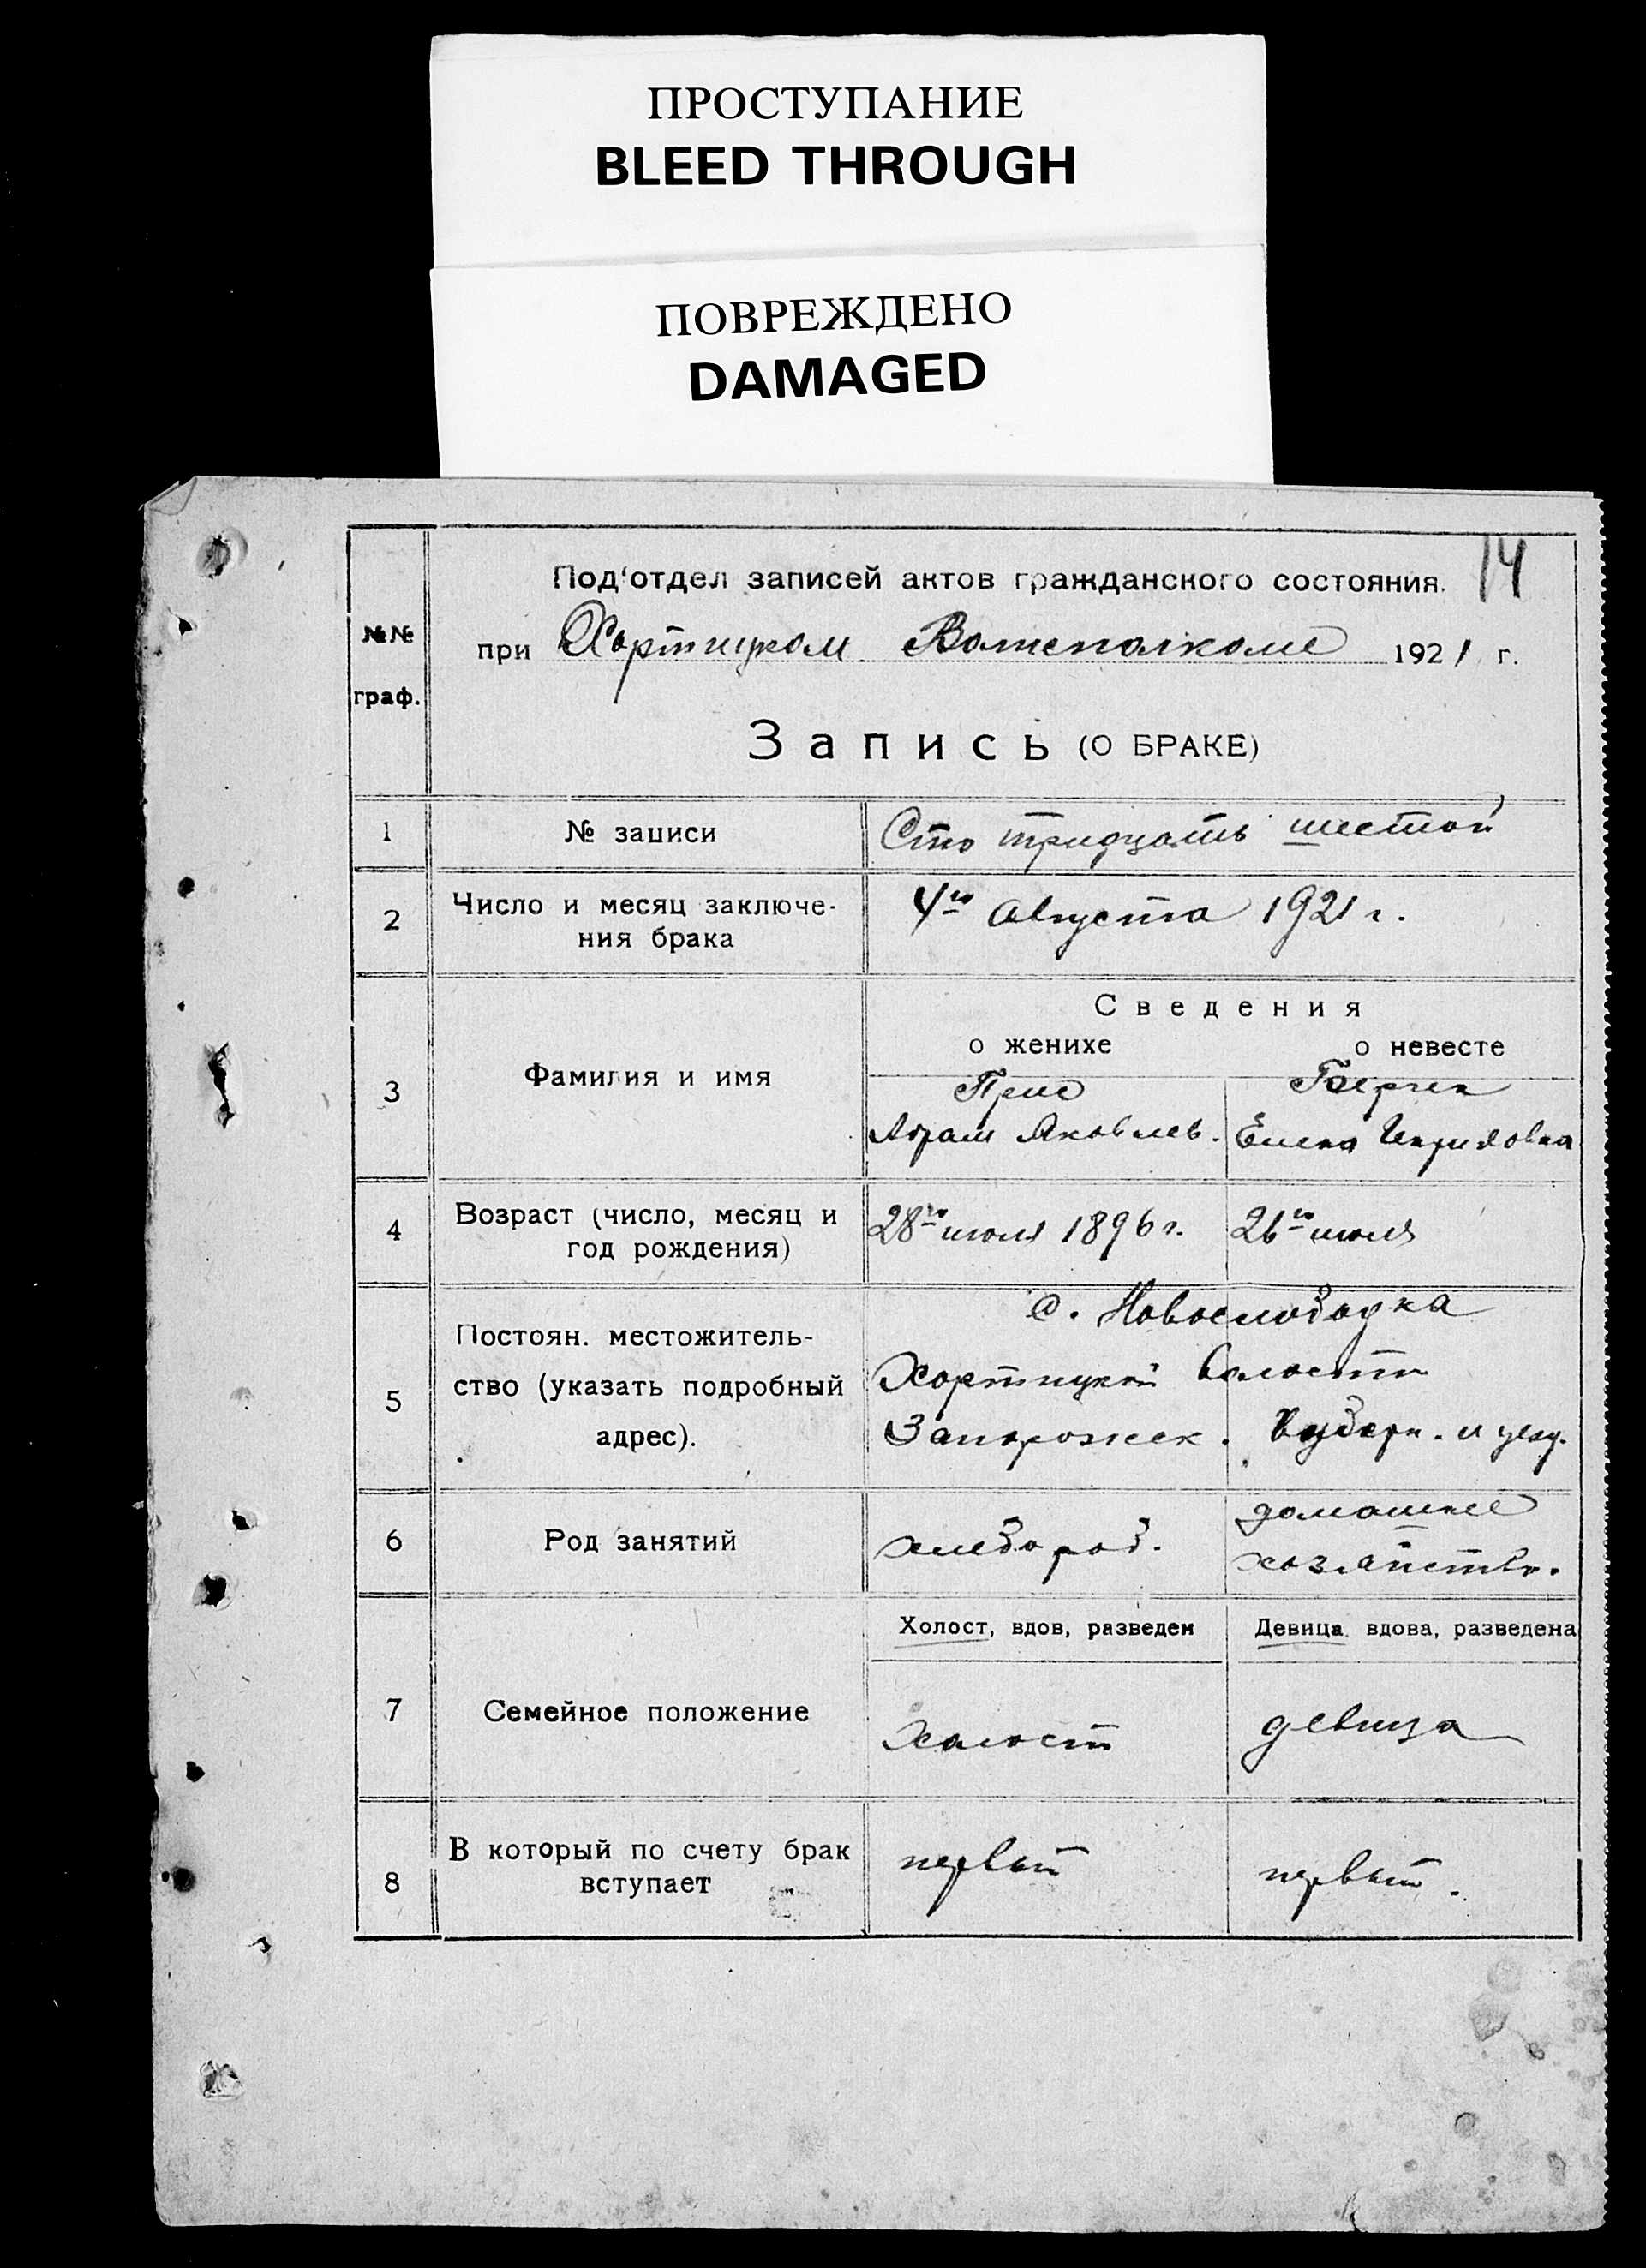 ПРОСТУПАНИЕ
BLEED THROUGH
ПОВРЕЖДЕНО
DAMAGED
14
Под‘отдел записей актов гражданского состояния.
№№ граф.
при Хортицком Волисполкоме 1921 г.
Запись (О БРАКЕ)
1 № записи Сто тридцать шестой
2 Число и месяц заключе-
ния брака
4го Августа 1921 г.
Сведения
о женихе о невесте
3 Фамилия и имя
Прис
Абрам Яковлев. Елена Генриховна
4 Возраст (число, месяц и
год рождения)
28го июля 1896 г. 26го июля
с. Новослободка
5 Постоян. местожитель-
ство (указать подробный
адрес).
Хортицкой волости
Запорожск. губерн. и уезд.
6 Род занятий
хлебороб. домашнее
хозяйство.
Холост, вдов, разведен Девица, вдова, разведена
7 Семейное положение
холост девица
8 В который по счету брак
вступает
первый первый.